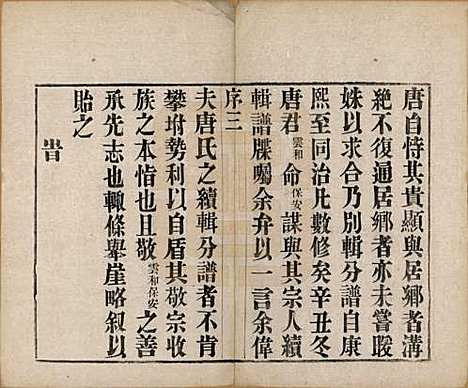 唐自恃其貴顯與居鄉者溝
絕不復通居鄉者亦未嘗暖
姝以求合乃別輯分譜自康
熙至同治凡數修矣辛丑冬
唐君雲和保安命謀與其宗人續
輯譜牒囑余弁以一言余偉
序三
夫唐氏之續輯分譜者不肯
攀坿勢利以自盾其敬宗收
族之本恉也且敬雲和保安之善
承先志也輒條舉崖略叙以
貽之
旹